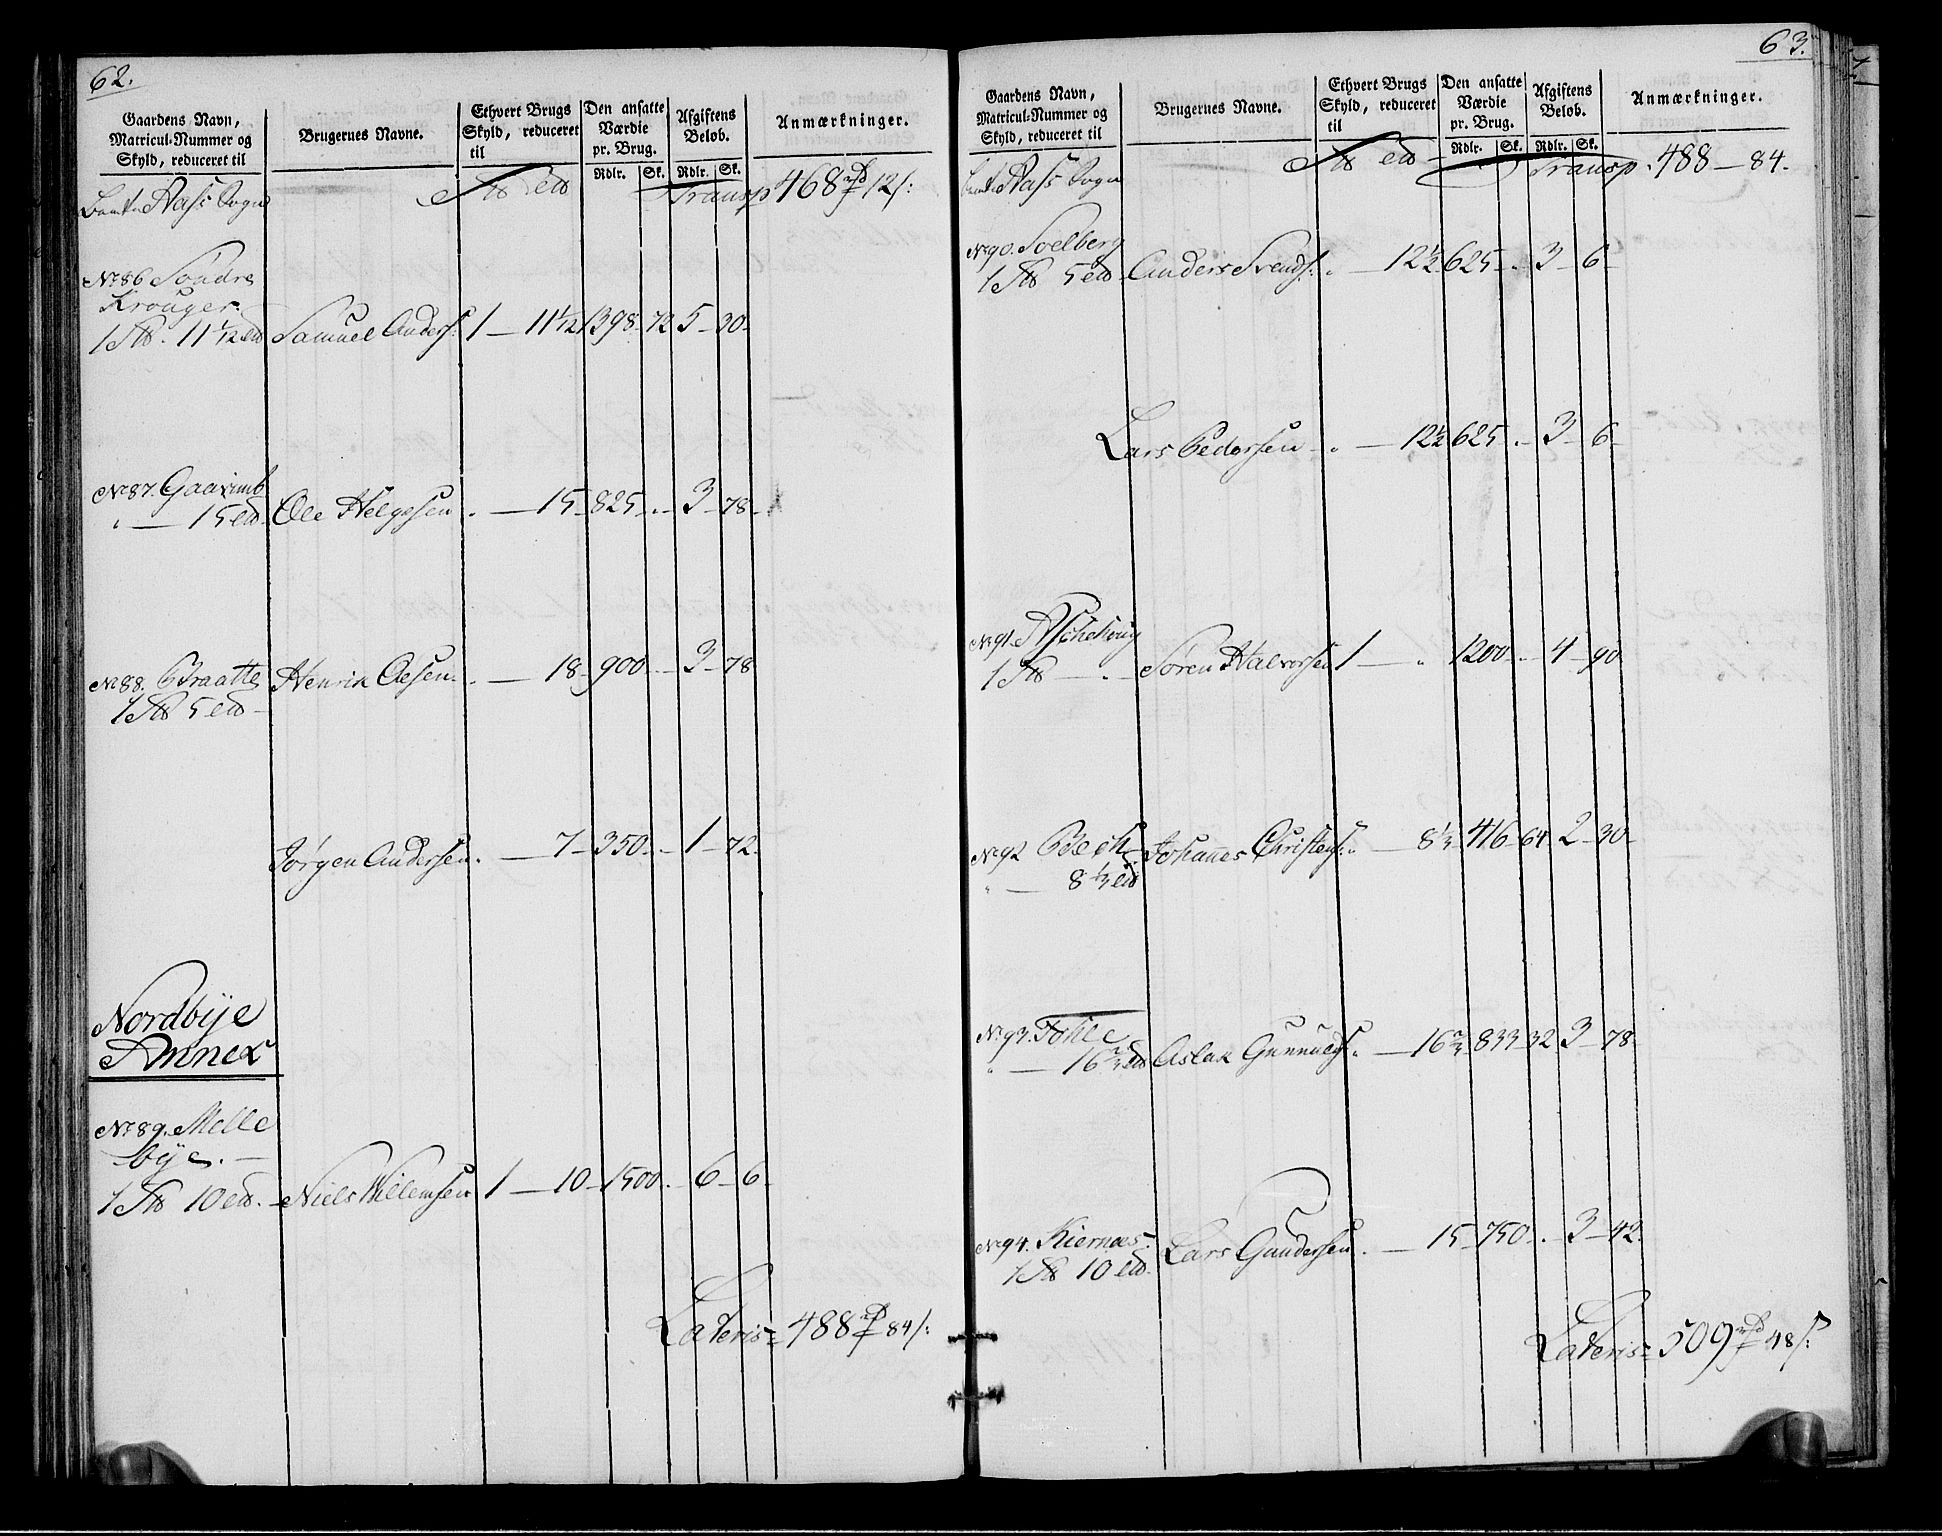 62.
Gaardens Navn, Matricul-Nummer og Skyld, reduceret til
Brugernes Navne.
Ethvert Brugs Skyld, reduceret til
Den ansatte Værdie pr. Brug.
Rdlr. Sk.
Afgiftens Beløb.
Rdlr. Sk.
Anmærkninger.
Aass Sogn
Transp 468 12
No 86 Söndre
Krouger
1 11 1/12 Samuel Anders: 1 — 11 1/12 1398 - 72 5 - 30 -
No 87. Gaarimb
" — 15 Ole Helgesen . — 15 - 825 - . - 3 - 78 -
No 88. Braatte Henrik Olsen . — 18 - 900 - . - 3 - 78
1 5
Jörgen Andersen . — 7 - 350 - . - 1 - 72 -
Nordbÿe
Annex
No 89. Melle
bÿe. —
1 10 . - Niels Willemsen 1 — 10 - 1500 - . - 6 - 6 -
Lateris = 488 84
63.
Gaardens Navn, Matricul-Nummer og Skyld, reduceret til
Brugernes Navne.
Ethvert Brugs Skyld, reduceret til
Den ansatte Værdie pr. Brug.
Rdlr. Sk.
Afgiftens Beløb.
Rdlr. Sk.
Anmærkninger.
Aass Sogn
Transp. 488 — 84.
No 90. Soelberg
1 5 Anders Svends: . — 12 1/2 625 - . - 3 - 6 -
Lars Pedersen - . — 12 1/2 625 . - 3 - 6 -
No 91. Aschehoug
1 — " - Sören Halvorsen 1 — " 1200 - . - 4 - 90
No 92 Bech Johannes Christens: . — 8 1/3 - 416 - 64 2 - 30 -
" — 8 1/3
No 93. Tohle
" — 16 2/3 Aslak Gunnulfs . — 16 2/3 833 - 32 3 - 78 -
No 94. Kiernæs:
1 10 . Lars Gundersen . — 15 - 750 - . - 3 - 42 -
Lateris = 509 48